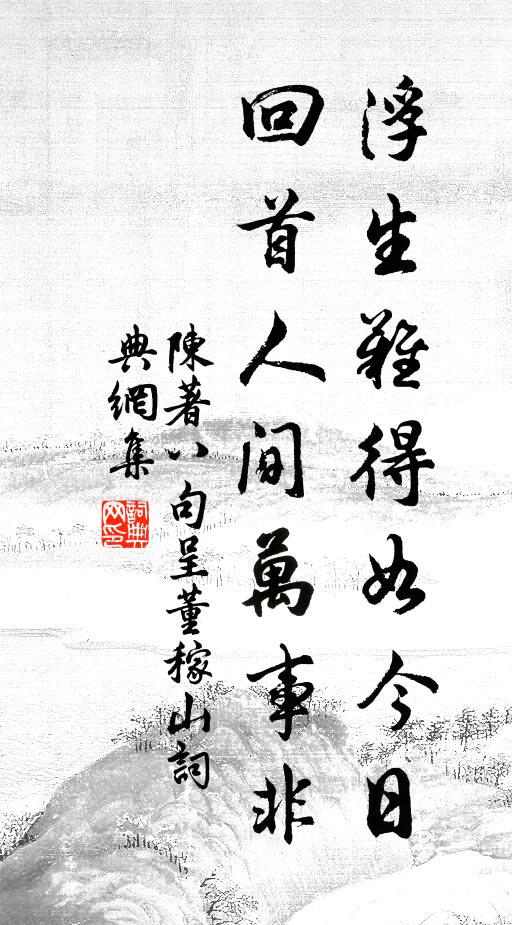 浮生難得如今日
回首人間萬事非
陳著八句呈董稼山詞
典網集
詞典網印